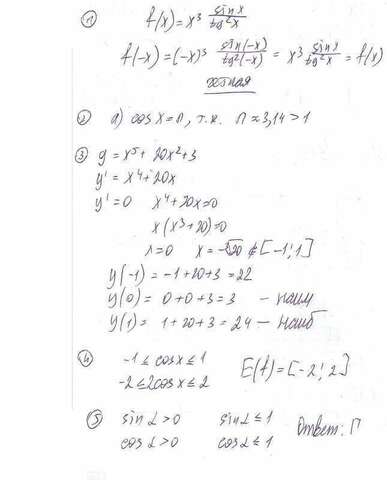 ① f(x) = x³ sinx/tg²x
f(-x) = (-x)³ sin(-x)/tg²(-x) = x³ sinx/tg²x = f(x)
четная
② а) cosx = π, т.к. π ≈ 3,14 > 1
③ y = x⁵ + 20x² + 3
y' = x⁴ + 20x
y' = 0 x⁴ + 20x = 0
x(x³ + 20) = 0
x = 0 x = -∛20 ∉ [-1; 1]
y(-1) = -1 + 20 + 3 = 22
y(0) = 0 + 0 + 3 = 3 — наим
y(1) = 1 + 20 + 3 = 24 — наиб
④ -1 ≤ cosx ≤ 1 E(f) = [-2; 2]
-2 ≤ 2cosx ≤ 2
⑤ sin α > 0 sin α ≤ 1 Ответ: Г
cos α > 0 cos α ≤ 1